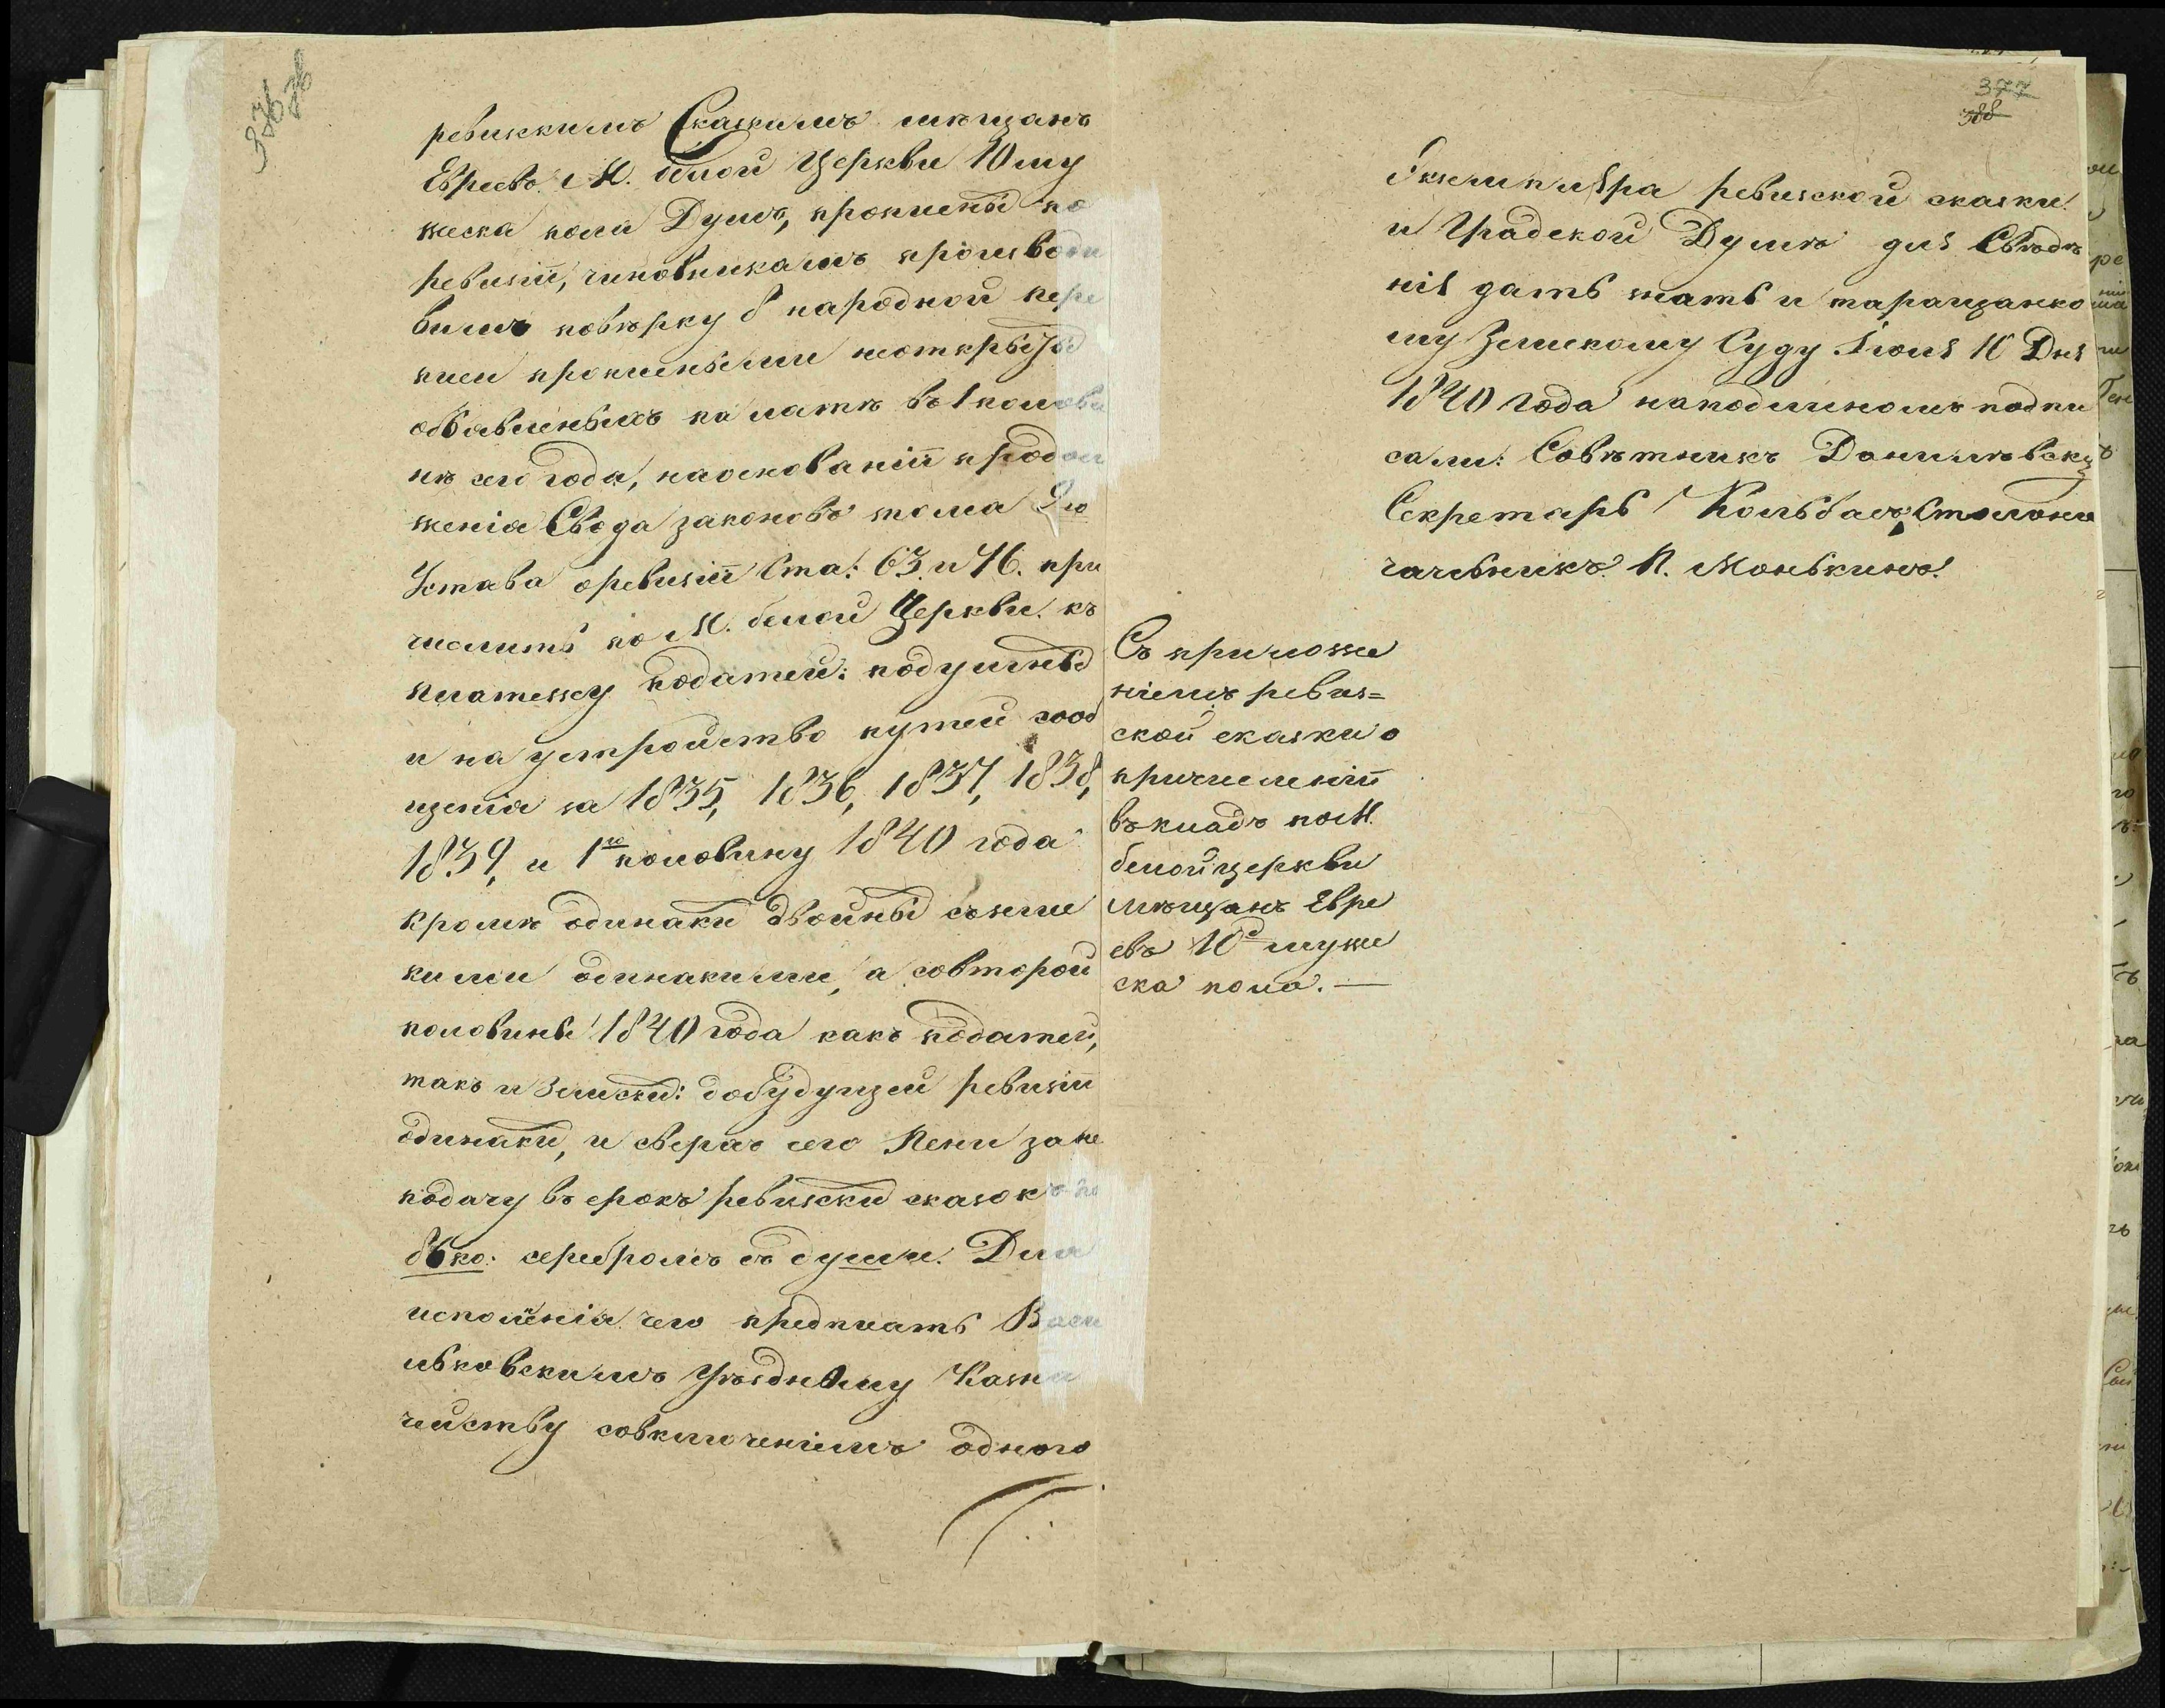 376
ревизкимъ Сказкамъ мѣщанъ
Евреевъ М. белой Церкви 10 му
жеска пола Душъ, пропшены по
ревизіи, чиновникамъ производи
вшимъ повѣрку 8 народной пере
писи пропшеными неоткрыты
объявленымъ палатѣ въ 1 полови
нѣ сего года, на основаніи продол
женія Свода законовъ тома 9го
Устава о ревизіи Ста: 63. и 76. при
числить по М. белой Церкви къ
платежу податей: подушны
и на устройство путей сооб
щенія за 1835, 1836, 1837, 1838,
1839, и 1ю половину 1840 года
кромѣ одинаки двойны съ
кими одинакими, а совторой
половины 1840 года какъ податей,
такъ и Земски: до будущей ревизіи
одинаки, и сверхъ сего Пени за не
подачу въ срокъ ревизски сказокъ по
ко: серебромъ съ души. Для
исполненія чего предписать Васи
льковскимъ Уѣздному Казна
чейству совключеніемъ одного
377
388
Екземпляра ревизской сказки
и Градской Думѣ для Свѣдѣ
нія дать знать и таращанско
му Земскому Суду. Іюля 10 Дня
1840 года на подлиномъ подпи
сали: Совѣтникъ Данилѣвскій
Секретарь Кольбасъ, Столона
чальникъ П. Моньвкинъ.
Съ приложе
ніемъ ревиз=
ской сказки о
причисленіи
въ кладъ по М.
белой церкви
мѣщанъ Евре
евъ 10 муже
ска пола. —